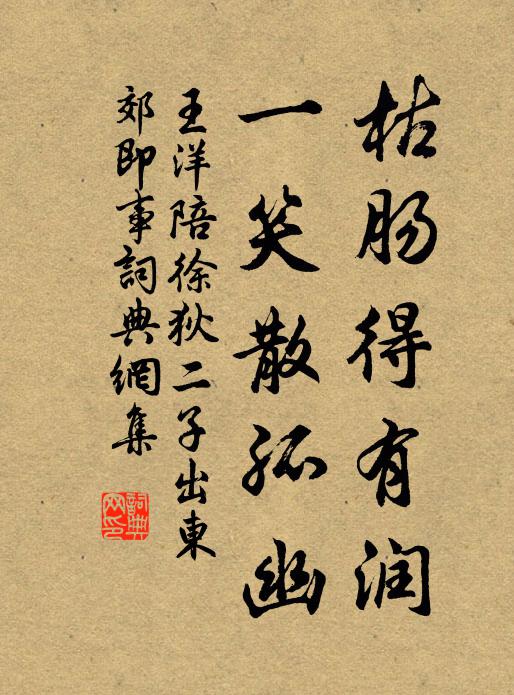 枯肠得有润
一笑散孤幽
王洋陪徐狄二子出東
郊即事詞典網集
詞典
网印